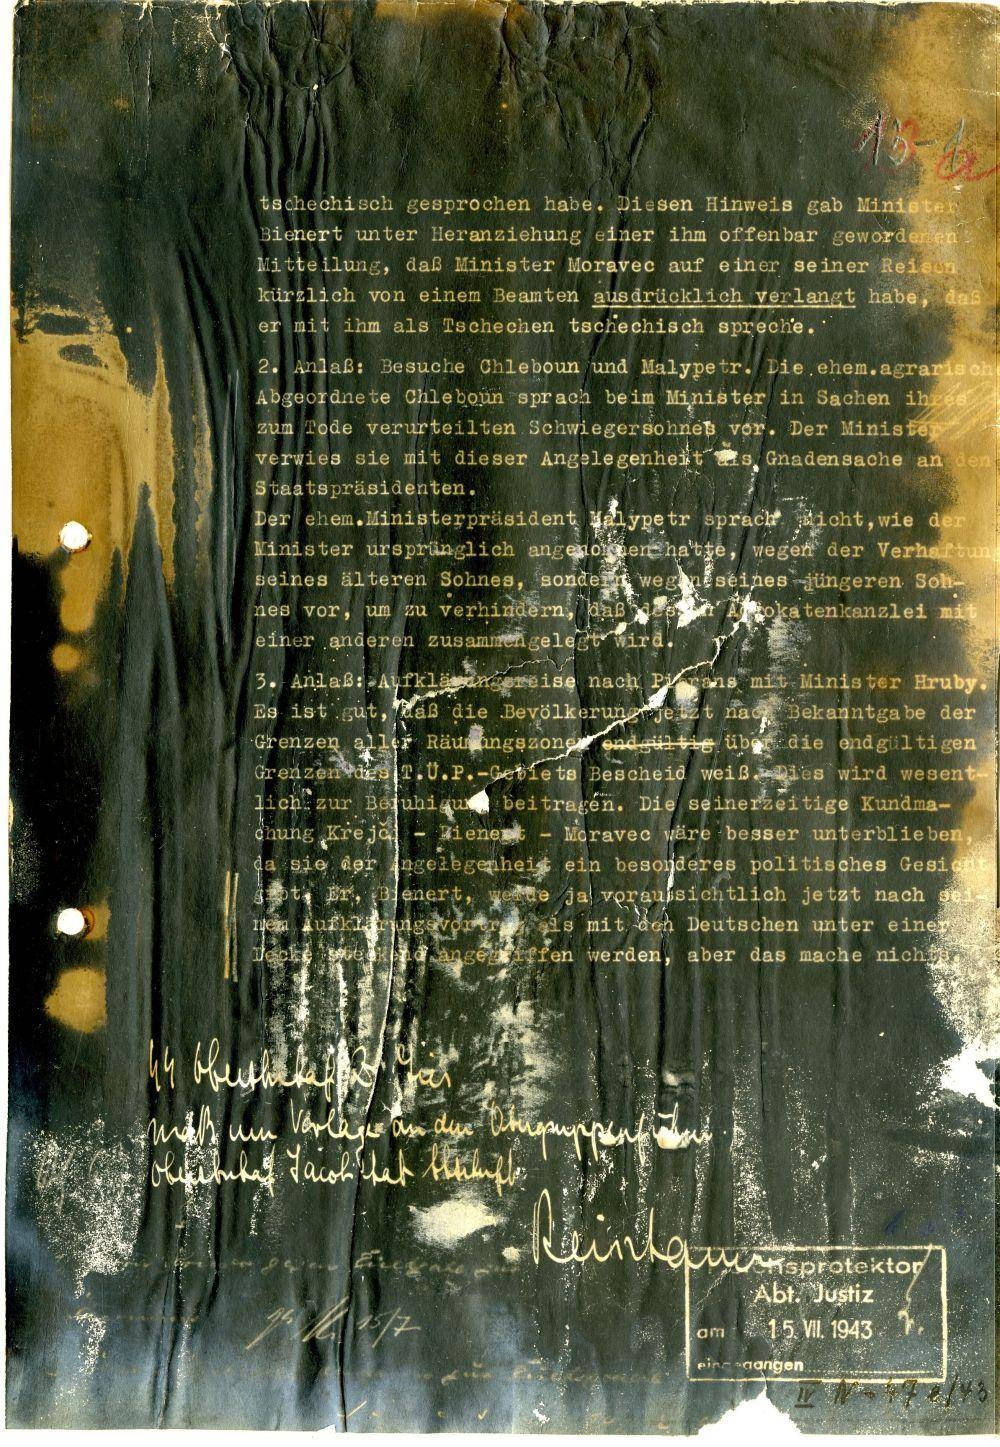 tschechisch gesprochen habe. Diesen Hinweis gab Minister
Bienert unter Heranziehung einer ihm offenbar gewordenen
Mitteilung, daß Minister Moravec auf einer seiner Reisen
kürzlich von einem Beamten ausdrücklich verlangt habe, daß
er mit ihm als Tschechen tschechisch spreche.
2. Anlaß: Besuche Chleboun und Malypetr. Die ehem.agrarische
Abgeordnete Chleboun sprach beim Minister in Sachen ihres
zum Tode verurteilten Schwiegersohnes vor. Der Minister
verwies sie mit dieser Angelegenheit als Gnadensache an den
Staatspräsidenten.
Der ehem.Ministerpräsident Malypetr sprach nicht,wie der
Minister ursprünglich angenommen hatte, wegen der Verhaftun
seines älteren Sohnes, sondern wegen seines jüngeren Soh-
nes vor, um zu verhindern, daß dessen Advokatenkanzlei mit
einer anderen zusammengelegt wird.
3. Anlaß: Aufklärungsreise nach mit Minister Hruby.
Es ist gut, daß die Bevölkerung jetzt nach Bekanntgabe der
Grenzen aller Räumungszonen endgültig über die endgültigen
Grenzen des T.Ü.P.-Gebiets Bescheid weiß. Dies wird wesent-
lich zur Beruhigung beitragen. Die seinerzeitige Kundma-
chung Krejci - Bienert - Moravec wäre besser unterblieben,
da sie der Angelegenheit ein besonderes politisches Gesicht
gibt. Er, Bienert, werde ja voraussichtlich jetzt nach sei-
nem Aufklärungsvortrag als mit den Deutschen unter einer
Decke steckend angegriffen werden, aber das mache nichts.
um Vorlage an den Obergruppenführer
Jacobi hat Abschrift
protektor
Abt. Justiz
am 15. VII. 1943
eingegangen
15/7
IV N - 47 e/43